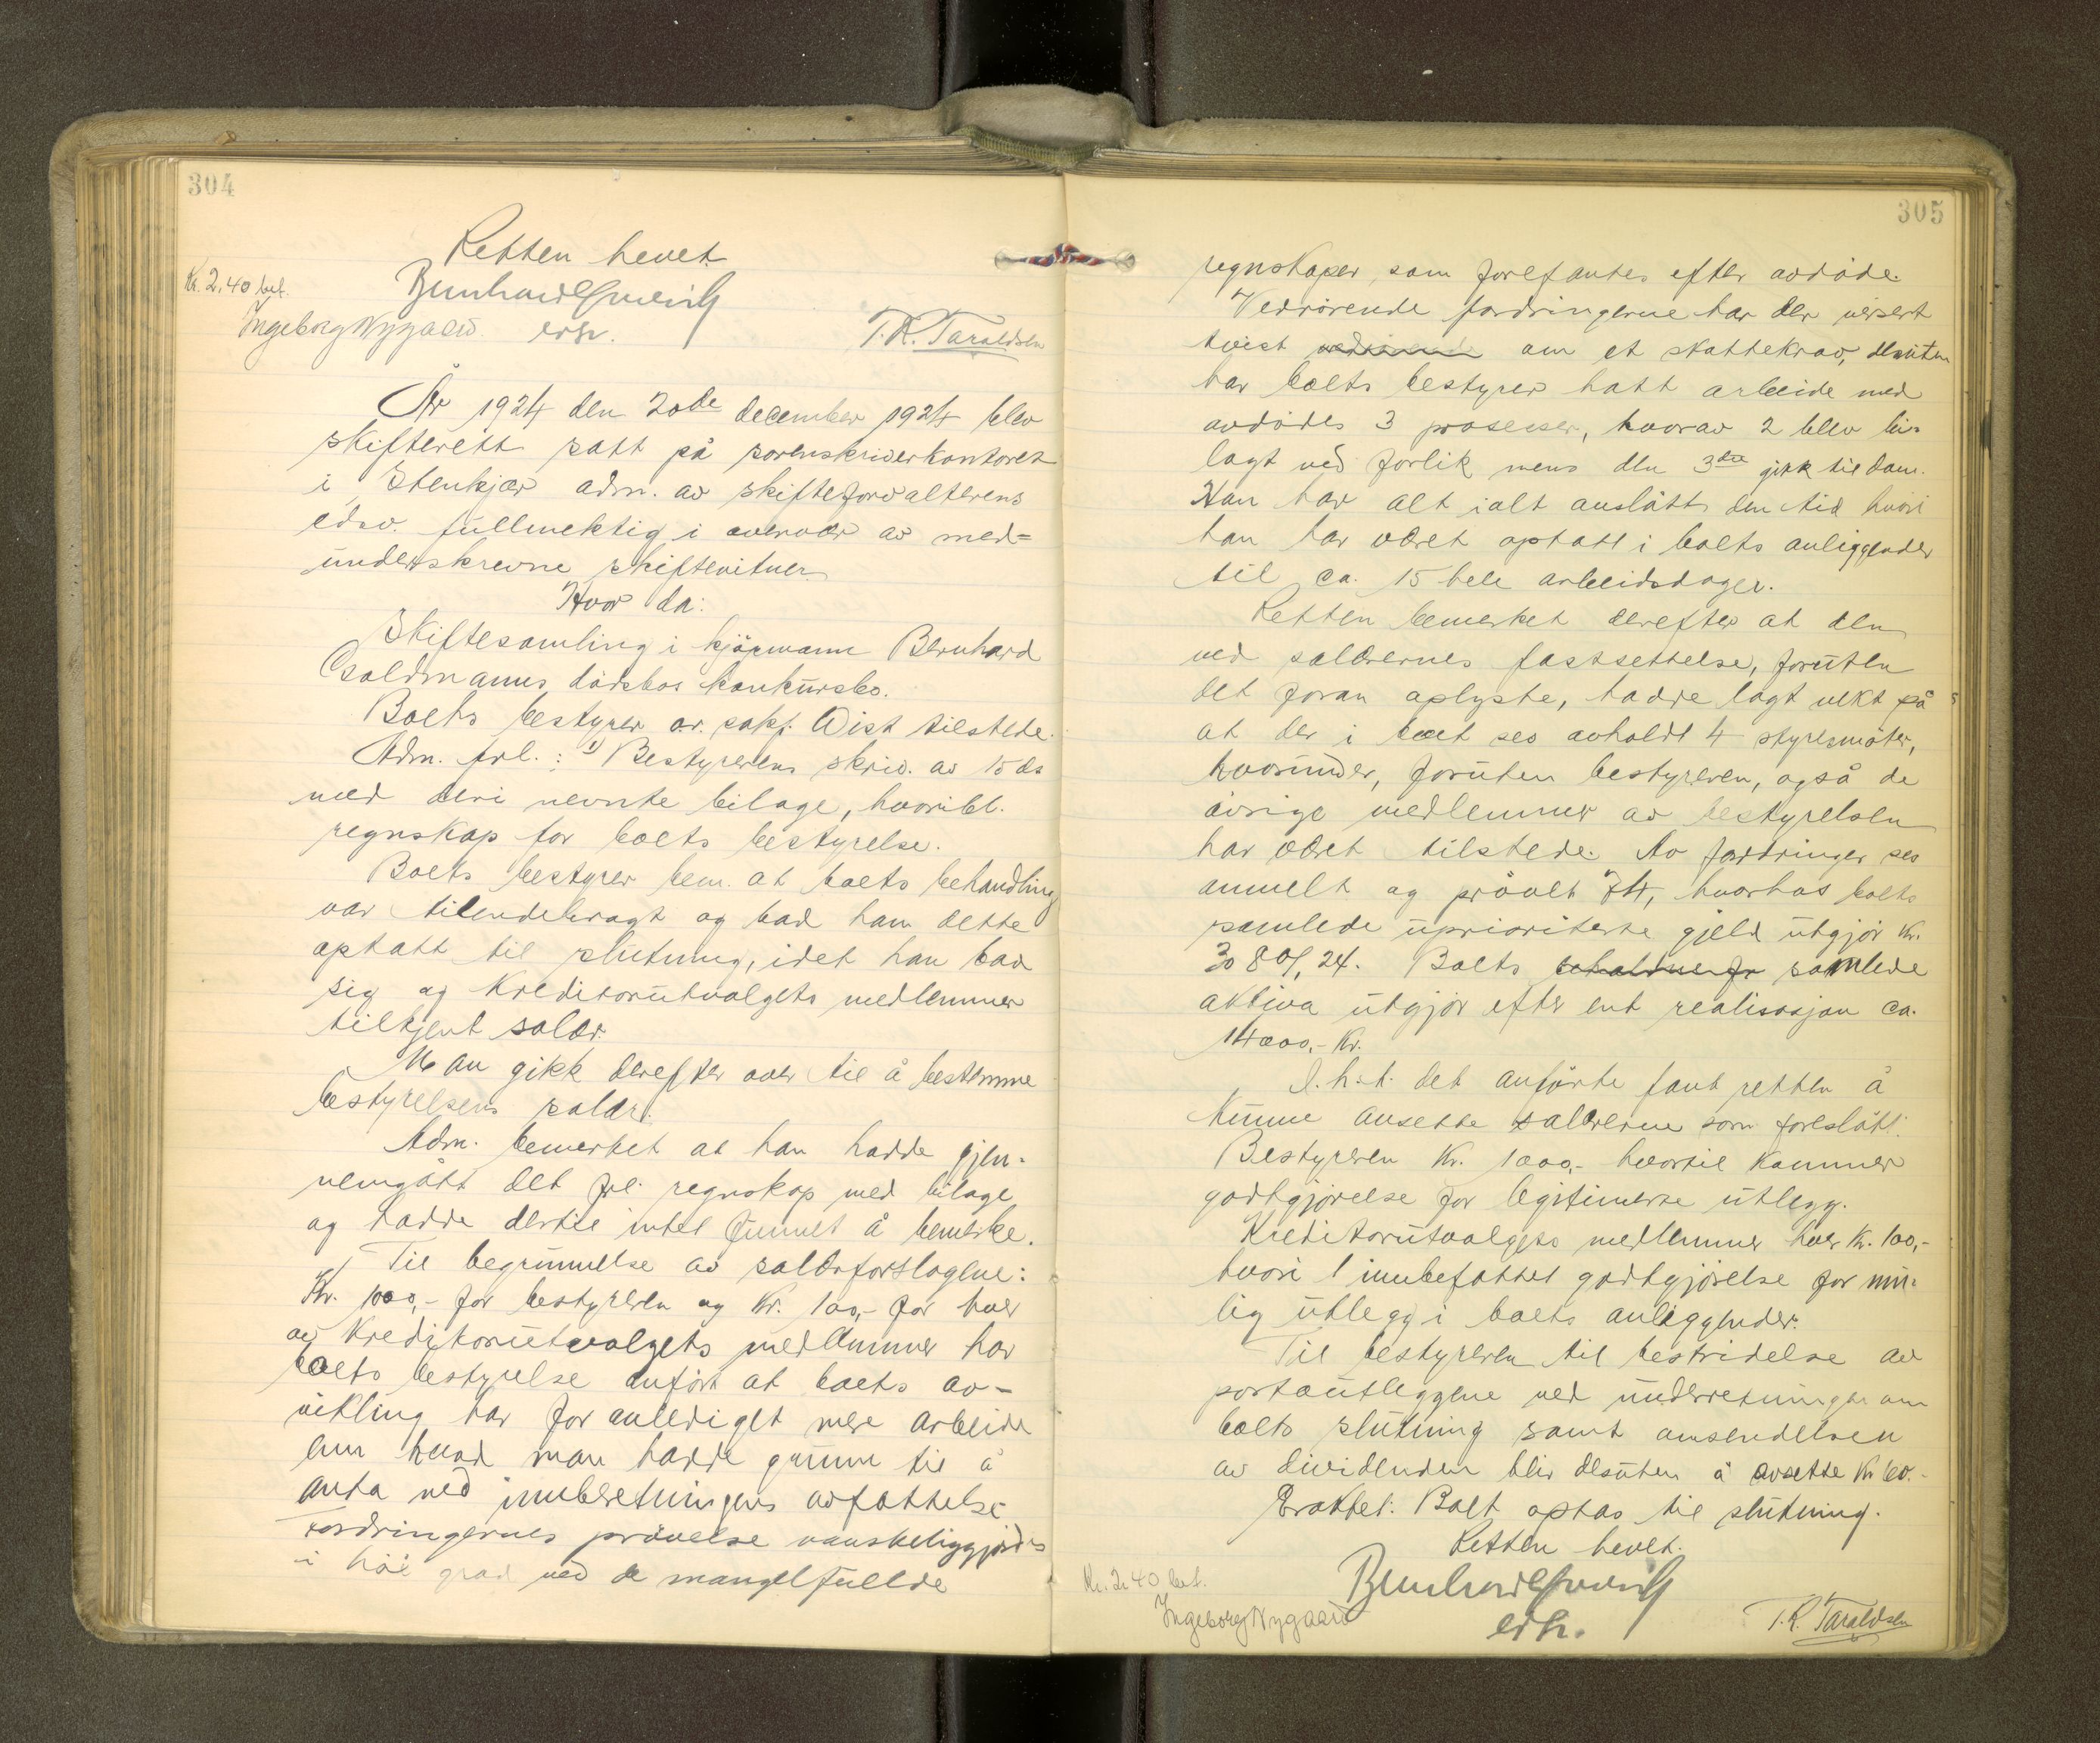 304
Retten hevet.
Kr. 2,40 bet.
Ingeborg Nygaard
csr.
T. R. Taraldsen
År 1924 den 20de december 1924 blev
skifterett satt på sorenskriverkontoret
i Stenkjær adm. av skifteforvalterens
edsv. fullmektig i overvær av med=
underskrevne skiftevitner
Hvor da:
Skiftesamling i kjöpmann Bernhard
Goldmanns dödsbos konkursbo.
Boets bestyrer o.r. sakf. Wist tilstede.
Adm. frl.: 1) Bestyrerens skriv. av 15 ds
med deri nevnte bilage, hvoribl.
regnskap for boets bestyrelse.
Boets bestyrer bem. at boets behandling
var tilendebragt og bad ham dette
optatt til slutning, idet han bad
sig og kreditorutvalgets medlemmer
tilkjent salær.
Man gikk derefter over til å bestemme
bestyrelsens salær.
Adm. bemerket at han hadde gjen-
nemgått det frl. regnskap med bilage
og hadde dertil intet funnet å bemerke.
Til begrunnelse av salærforslagene:
Kr. 1000,- for bestyreren og Kr. 100,- for hver
av kreditorutvalgets medlemmer har
boets bestyrelse anfört at boets av-
vikling har foranlediget mere arbeide
enn hvad man hadde grunn til å
anta ved innberetningens avfattelse
Fordringernes prövelse vanskeliggjordes
i höi grad ved de mangelfullde
305
regnskaper, som forefantes efter avdöde.
Vedrörende fordringerne har der versert
tvist om et skattekrav, desuten
har boets bestyrer hatt arbeide med
avdödes 3 prosesser, hvorav 2 blev bi-
lagt ved forlik mens den 3die gikk til dom.
Han har alt ialt anslått den tid hvori
han har været optatt i boets anliggender
til ca. 15 hele arbeidsdager.
Retten bemerket derefter at den
ved salærernes fastsettelse, foruten
det foran oplyste, hadde lagt vekt på
at der i boet ses avholdt 4 styresmöter,
hvorunder, foruten bestyreren, også de
övrige medlemmer av bestyrelsen
har været tilstede. Av fordringer ses
anmelt og prövet 74, hvorhos boets
samlede uprioriterte gjeld utgjör kr.
30801,24. Boets samlede
aktiva utgjör efter endt realisasjon ca.
14000,- kr.
I. h. t. det anförte fant retten å
kunne ansette salærerne som foreslått:
Bestyreren Kr. 1000,- hvortil kommer
godtgjörelse for legitimerte utlegg.
Kreditorutvalgets medlemmer hver Kr. 100,-
hvori innbefattet godtgjörelse for mu-
lig utlegg i boets anliggender.
Til bestyreren til bestridelse av
portoutleggene ved underretninger om
boets slutning samt omsendelsen
av dividenden blir desuten å avsette Kr 60.-
Eraktet: Boet optas til slutning.
Retten hevet.
Kr. 2.40 bet.
Ingeborg Nygaard
csr.
T. R. Taraldsen